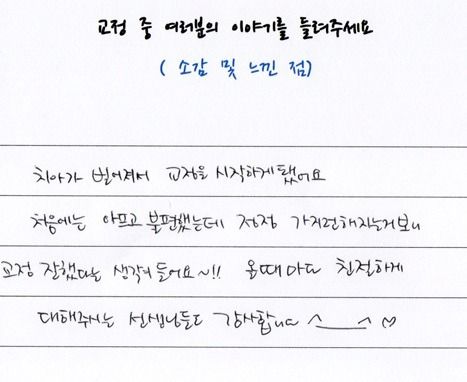 교정 중 여러분의 이야기를 들려주세요
( 소감 및 느낀 점)
치아가 벌어져서 교정을 시작하게됐어요
처음에는 아프고 불편했는데 점점 가지런해지는거보니
교정 잘했다는 생각이 들어요~!! 올때마다 친절하게
대해주시는 선생님들도 감사합니다 ^___^ ♡